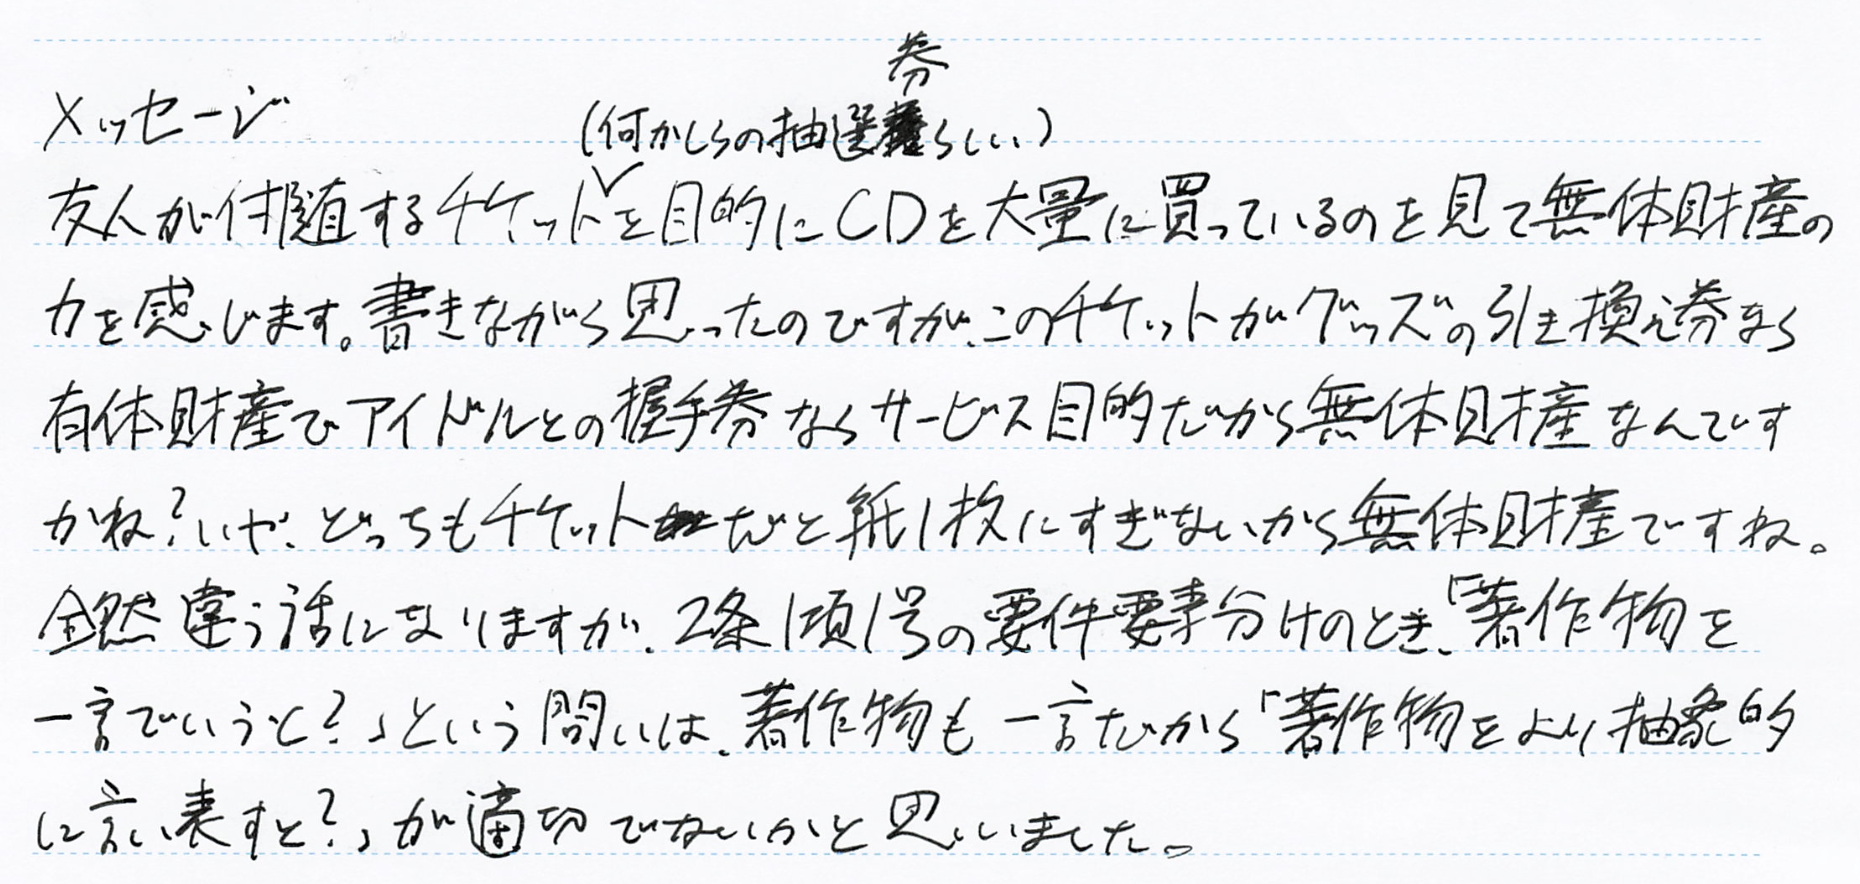 券
メッセージ
(何かしらの抽選らしい)
友人が付随するチケットを目的にCDを大量に買っているのを見て無体財産の
力を感じます。書きながら思ったのですが、このチケットがグッズの引き換え券なら
有体財産でアイドルとの握手券ならサービス目的だから無体財産なんです
かね?いや、どっちもチケットだと紙1枚にすぎないから無体財産ですね。
全然違う話になりますが、2条1項1号の要件要素分けのとき、「著作物を
一言でいうと?」という問いは、著作物も一言だから「著作物をより抽象的
に言い表すと?」が適切でないかと思いました。